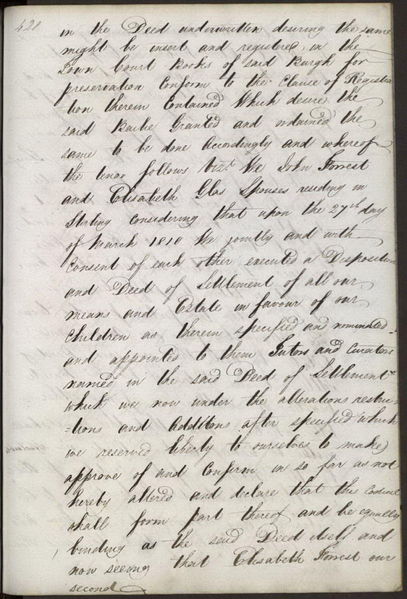 421
in the Deed underwritten desiring the same
might be insert and registred in the
Town Court Books of said Burgh for
preservation Conform to the Clause of Registra
tion therein Contained Which desire the
said Bailie Granted and ordained the
same to be done accordingly and whereof
the tenor follows vizt We John Forrest
and Elisabeth Glas Spouses residing in
Stirling Considering that upon the 27th day
of March 1810 We jointly and with
Consent of each other executed a Disposition
and Deed of Settlement of all our
means and Estate in favour of our
Children as therein specified and nominated
and appointed to them Tutors and Curators
named in the said Deed of Settlement
which we now under the alterations restric
-tions and additions after specified which
we reserved liberty to ourselves to make
approve of and Confirm in so far as not
hereby altered and declare that this Codicil
shall form part thereof and be equally
binding as the said Deed itself and
now seeing that Elisabeth Forrest our
second